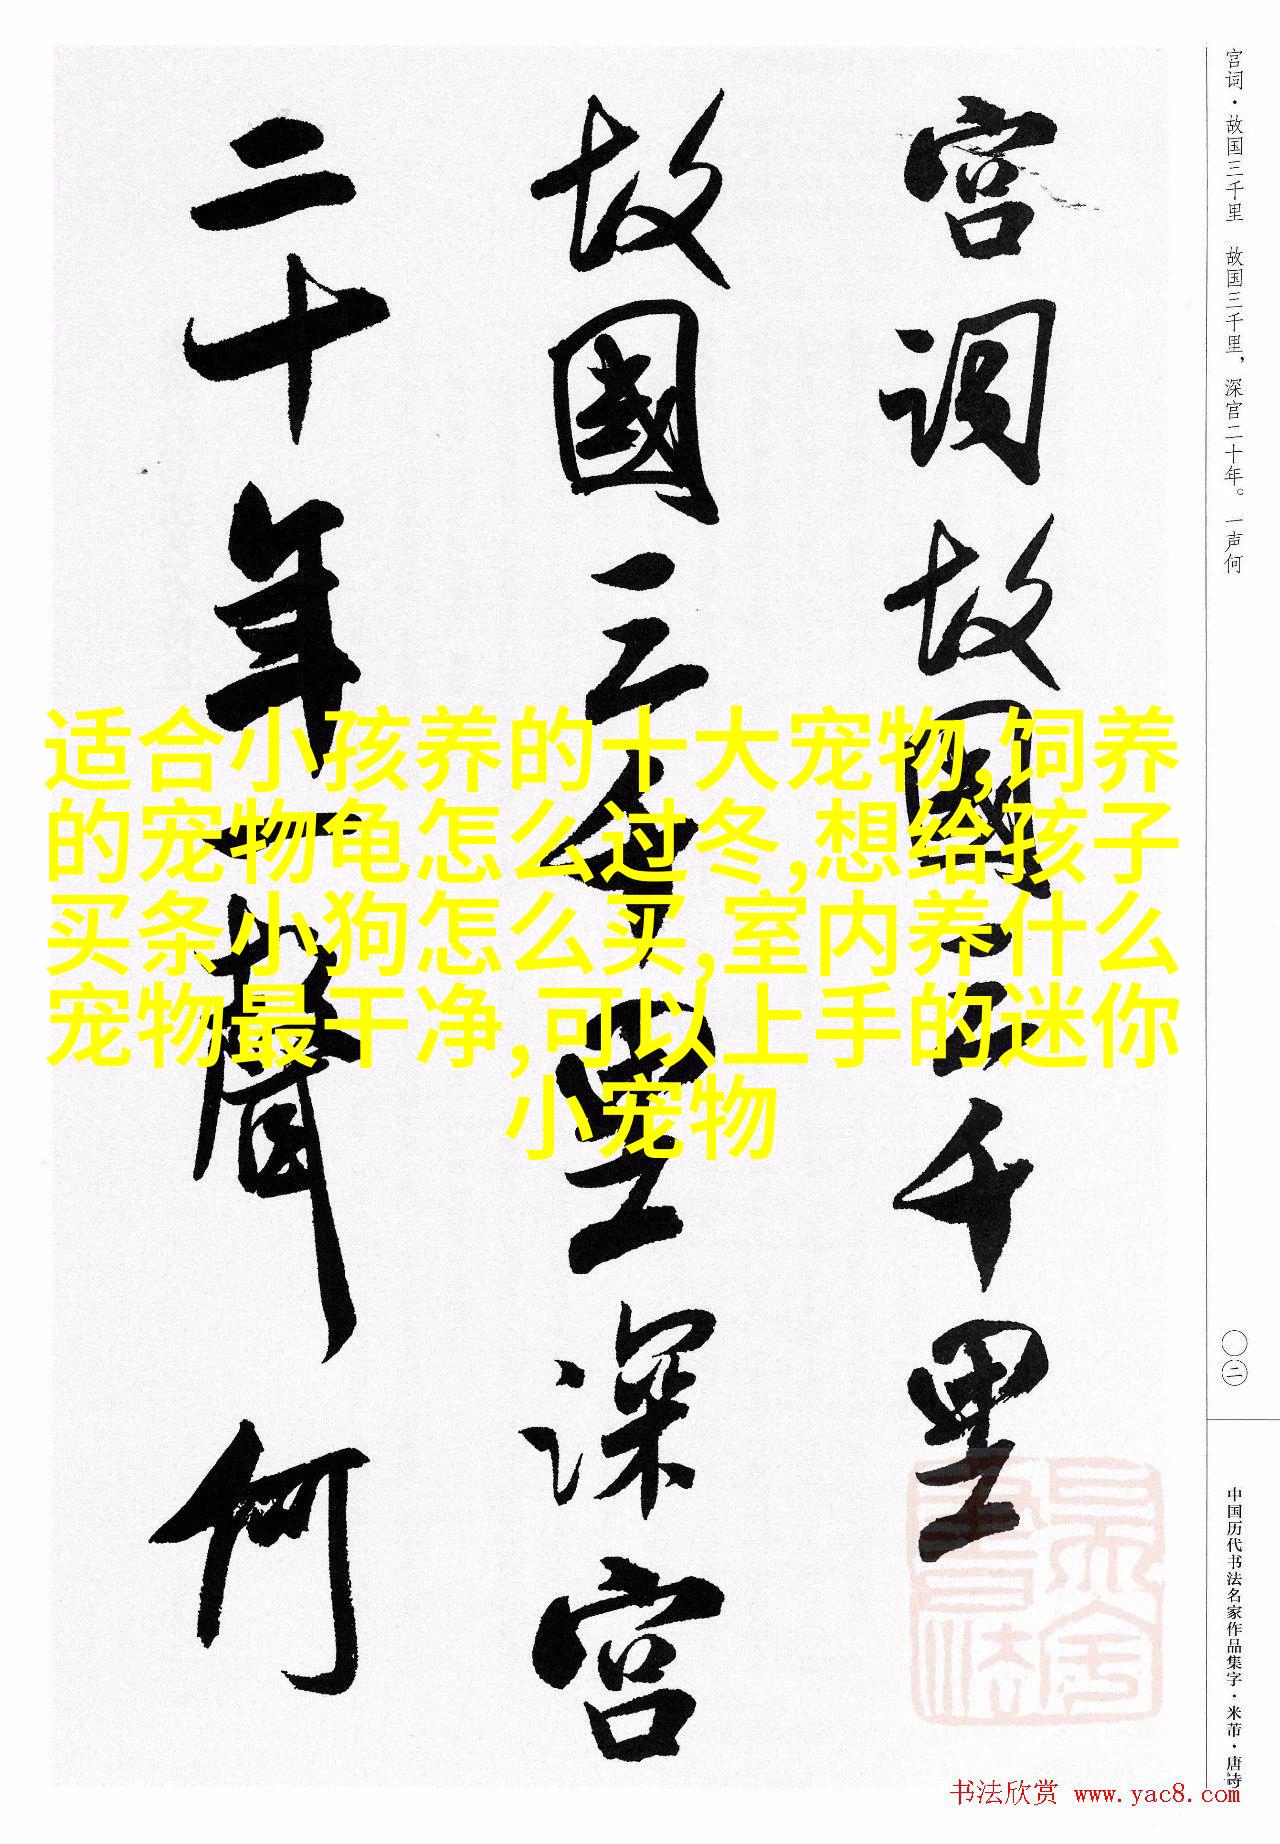 宫词故國三千里
故國三千里深宫
二十年一聲何
宫词·故国三千里 故国三千里，深宫二十年。一声何
〇二
中国历代书法名家作品集字·米芾·唐诗
适合小孩养的十大宠物,饲养
的宠物龟怎么过冬,想给孩子
买条小狗怎么买,室内养什么
宠物最干净,可以上手的迷你
小宠物
书法欣赏 www.yac8.com